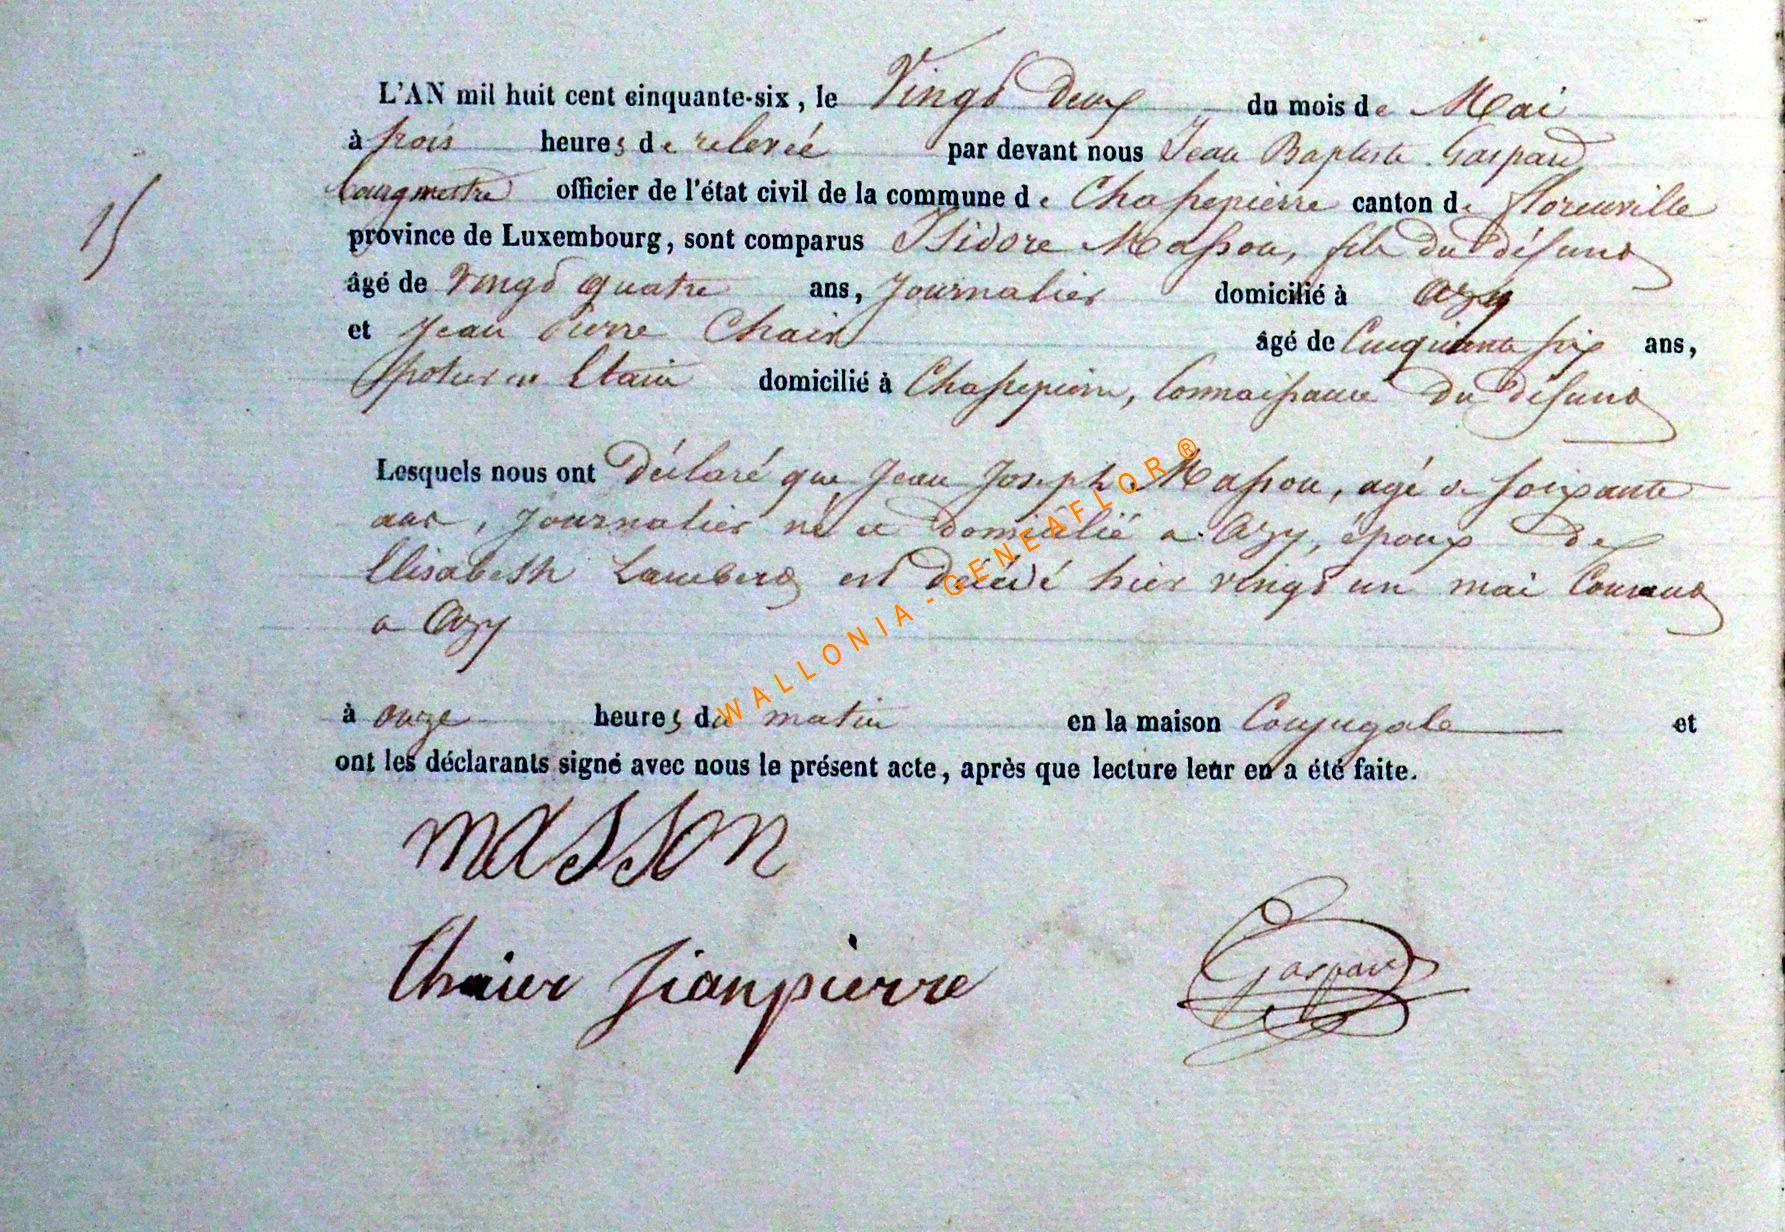 L'AN mil huit cent cinquante-six, le Vingt Deux du mois de Mai
à trois heures de relevée par devant nous Jean Baptiste Gaspard
15
bourgmestre officier de l'état civil de la commune de Chassepierre canton de florenville
province de Luxembourg, sont comparus Isidore Masson, fils du défunt
âgé de vingt quatre ans, Journalier domicilié à Azy
et Jean Pierre Chair âgé de Cinquante six ans,
potier en Etain domicilié à Chassepierre, Connaissance du défunt
Lesquels nous ont Déclaré que Jean Joseph Masson, agé de soixante
ans, Journalier né et domicilié a Azy, époux de
Elisabeth Lambert est Décédé hier vingt un mai Courant
a Azy
à onze heures du matin en la maison Conjugale et
ont les déclarants signé avec nous le présent acte, après que lecture leur en a été faite.
masson
Chaier jeanpierre
Gaspard
WALLONIA - GENEAFLOR ®